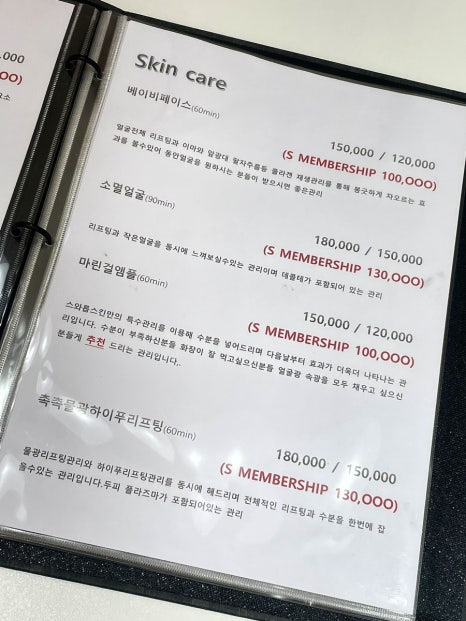 ,000
OO)
요소
Skin care
베이비페이스(60min)
150,000 / 120,000
(S MEMBERSHIP 100,OOO)
얼굴전체 리프팅과 이마와 앞광대 팔자주름등 콜라겐 재생관리를 통해 봉긋하게 차오르는 효
과를 볼수있어 동안얼굴을 원하시는 분들이 받으시면 좋은관리
소멸얼굴(90min)
180,000 / 150,000
(S MEMBERSHIP 130,OOO)
리프팅과 작은얼굴을 동시에 느껴보실수있는 관리이며 데콜테가 포함되어 있는 관리
마린걸앰플(60min)
150,000 / 120,000
(S MEMBERSHIP 100,OOO)
스와롬스킨만의 특수관리를 이용해 수분을 넣어드리며 다음날부터 효과가 더욱더 나타나는 관
리입니다. 수분이 부족하신분들 화장이 잘 먹고싶으신분들 얼굴광 속광을 모두 채우고 싶으신
분들게 추천 드리는 관리입니다..
촉촉물광하이푸리프팅(60min)
180,000 / 150,000
(S MEMBERSHIP 130,OOO)
물광리프팅관리와 하이푸리프팅관리를 동시에 해드리며 전체적인 리프팅과 수분을 한번에 잡
을수있는 관리입니다.두피 플라즈마가 포함되어있는 관리